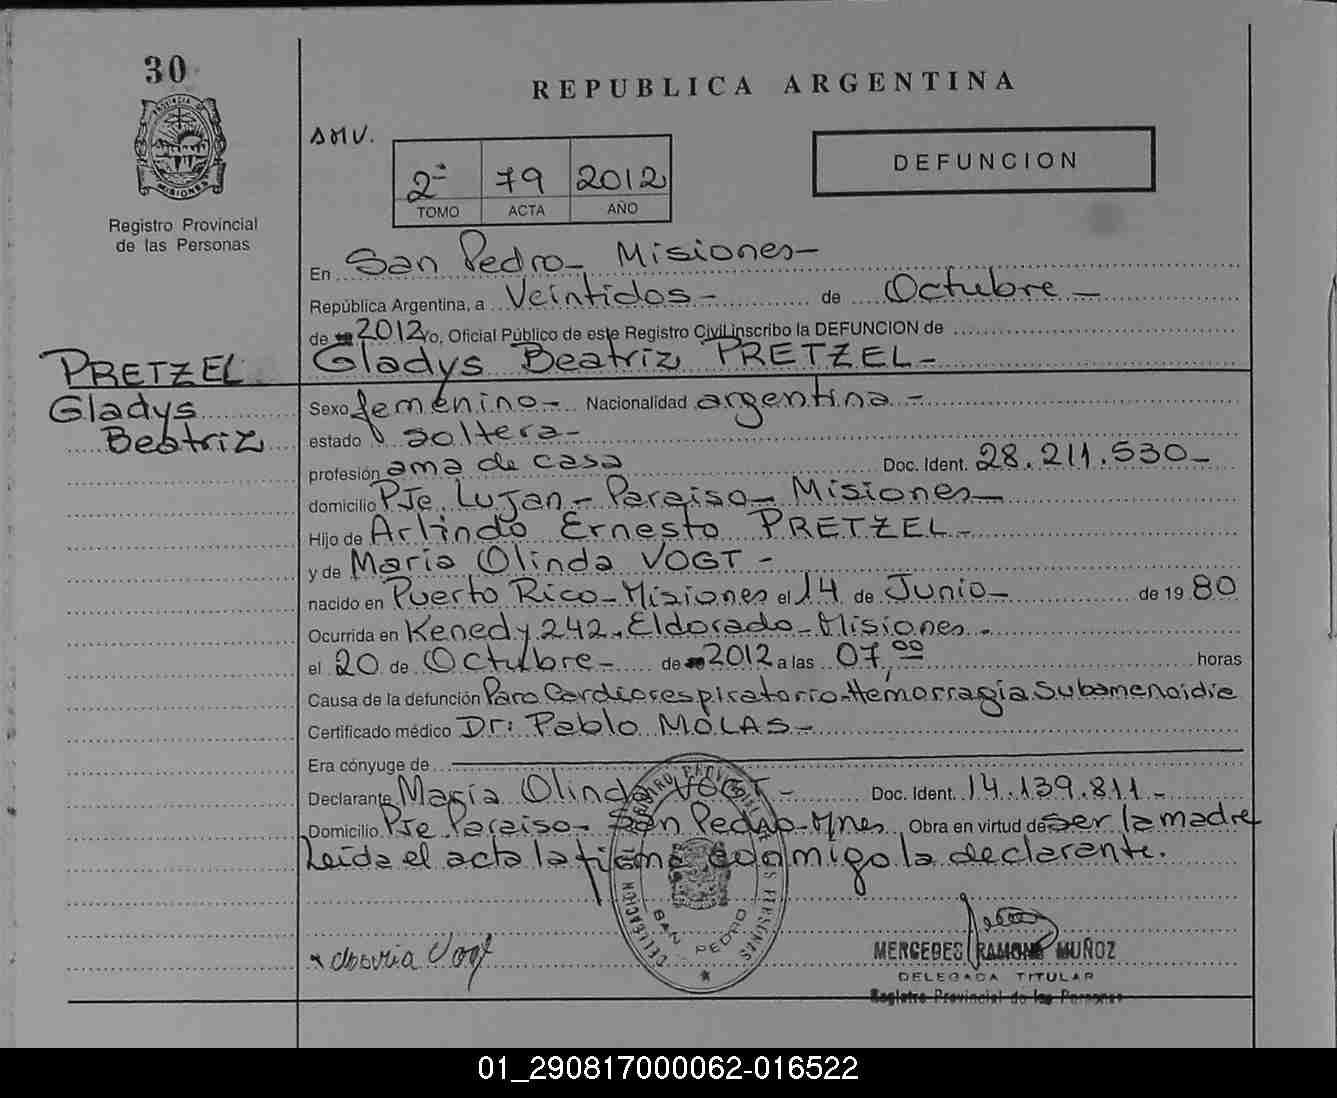 30
PROVINCIA DE
MISIONES
Registro Provincial
de las Personas
REPUBLICA ARGENTINA
2º 79 2012
TOMO ACTA AÑO
DEFUNCION
En San Pedro - Misiones -
República Argentina, a Veintidos - de Octubre -
de 2012 yo, Oficial Público de este Registro Civil inscribo la DEFUNCION de
Gladys Beatriz PRETZEL -
PRETZEL
Gladys
Beatriz
Sexo femenino - Nacionalidad argentina -
estado soltera -
profesión ama de casa Doc. Ident. 28.211.530 -
domicilio Pje. Lujan - Paraiso - Misiones -
Hijo de Arlindo Ernesto PRETZEL -
y de María Olinda VOGT -
nacido en Puerto Rico - Misiones el 14 de Junio - de 19 80
Ocurrida en Kenedy 242, Eldorado - Misiones -
el 20 de Octubre - de 2012 a las 07,00 horas
Causa de la defunción Paro Cardiorespiratorio - Hemorragia Subamenoidie
Certificado médico Dr: Pablo MOLAS -
Era cónyuge de
Declarante María Olinda VOGT - Doc. Ident. 14.139.811 -
Domicilio Pje Paraiso - San Pedro - Mnes Obra en virtud de ser la madre
Leída el acta la firma conmigo la declarante.
REGISTRO PROVINCIAL DE LAS PERSONAS
DELEGACION
SAN PEDRO
Vogt
MERCEDES RAMONA MUÑOZ
DELEGADA TITULAR
Registro Provincial de las Personas
01_290817000062-016522